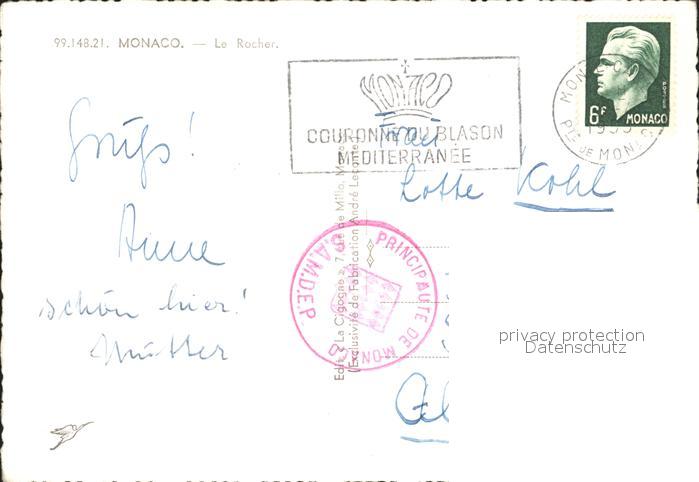 99.148.21. MONACO. — Le Rocher.
MONACO
COURONNE DU BLASON
MÉDITERRANÉE
6F MONACO
PTÉ DE MONACO
Gruß!
Anne
schön hier!
Mutter
Lotte Kohl
PRINCIPAUTE DE MONACO
S.A.M.D.E.P.
Edit. La Cigogne
(Exclusivité de Fabrication André Leconte)
privacy protection
Datenschutz